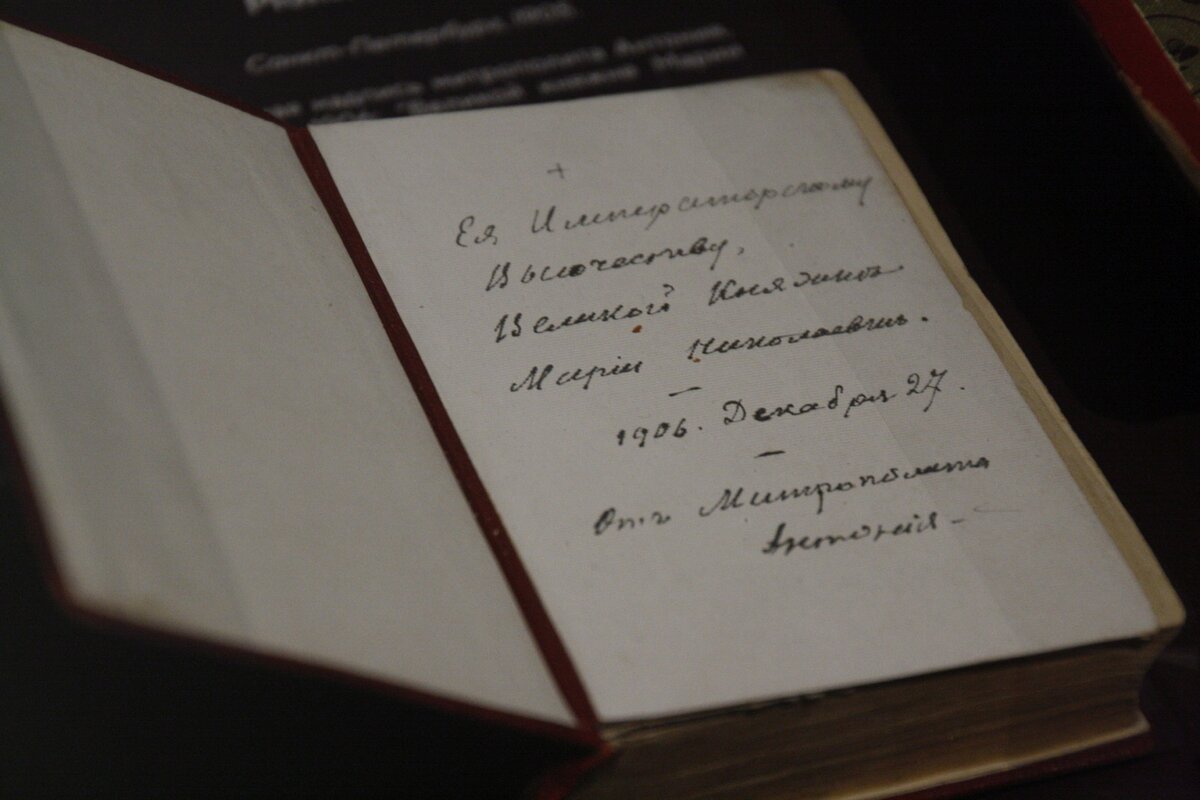 Санкт-Петербург, 1902
надпись митрополита Антония
"Великой княжне Марии
+
Ея Императорскому
Высочеству,
Великой Княжнѣ
Маріи Николаевнѣ.
—
1906. Декабря 27.
—
Отъ Митрополита
Антонія —